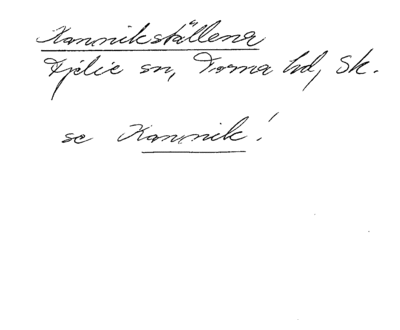 Kannikställena
Fjelie sn, Torna hd, Sk.
se Kannik!